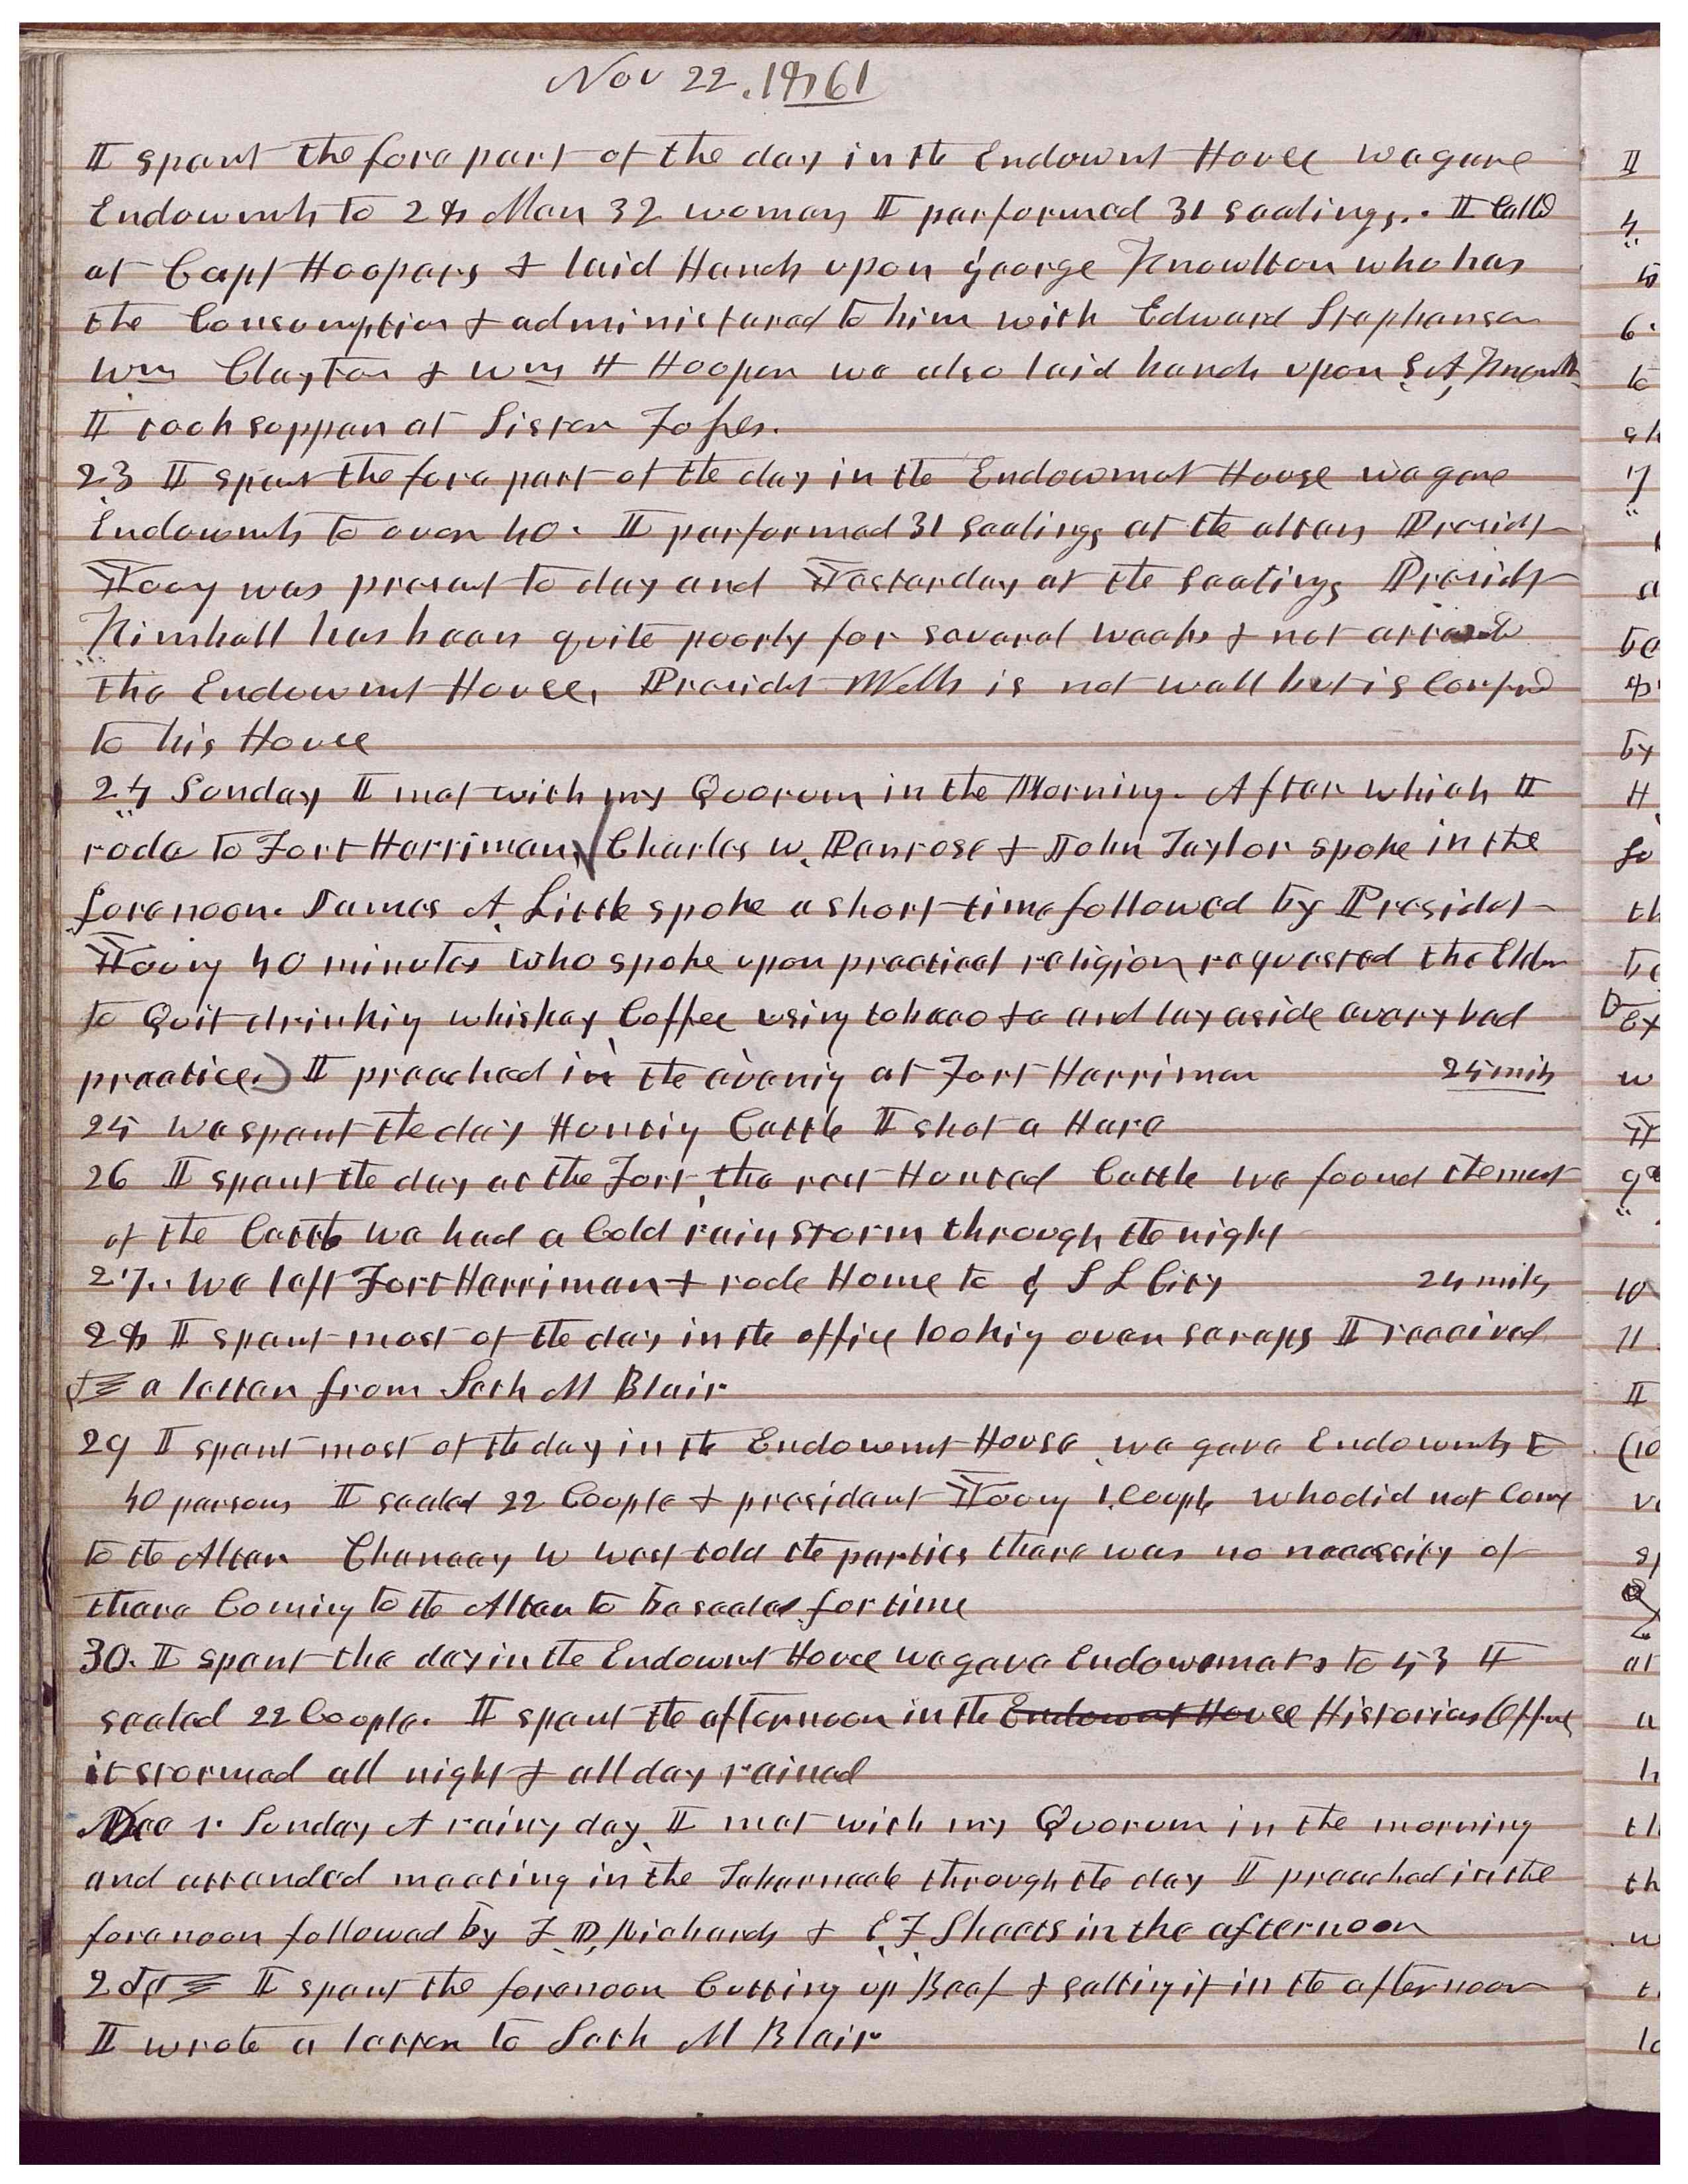 Nov 22. 1861
I spent the fore part of the day in the Endowmt House we gave
Endowmts to 28 Men 32 women I performed 31 sealings.. I Calld
at Capt Hoopers & laid Hands upon George Knowlton who has
the Consumption & administered to him with Edward Stephenson
Wm Clayton & Wm H Hooper we also laid hands upon S. A,
I took supper at Sister Fosses.
23 I spent the fore part of the day in the Endowmet House we gave
Endowmts to over 40. I performed 31 sealings at the altar, Presidt
Young was present to day and Yesterday at the sealings Presidt
Kimball has been quite poorly for several weeks & not attend
the Endowmt House, Presidet Wells is not well but is Confind
to his House
24 Sunday I met with my Quorum in the Morning. After which I
rode to Fort Harriman, Charles W. Penrose & John Taylor spoke in the
forenoon. James A. Little spoke a short time followed by Presidet
Young 40 minutes who spoke upon practical religion requested the Elders
to Quit drinkig whiskey Coffee using tobaco &c and lay aside every bad
practice.) I preached in the evenig at Fort Harriman 25 mils
25 We spent the day Huntig Cattle I shot a Hare
26 I spent the day at the Fort, the rest Hunted Cattle we found the most
of the Cattle we had a Cold rain storm through the night
27.. We left Fort Harriman & rode Home to G S L City 25 mils
28 I spent most of the day in the office lookig over scraps I received
a letter from Seth M Blair
29 I spent most of the day in the Endowemt House, we gave Endowmts to
40 persons I sealed 22 Couple & president Young 1. Couple who did not Come
to the Altar Chancey W West told the parties there was no necessity of
there Coming to the Altar to be sealed for time
30. I spent the day in the Endowmt House we gave Endowemets to 43 I
sealed 22 Couple. I spent the afternoon in the Endowmt House Historians Office
it stormed all night & all day rained
Dec 1. Sunday A rainy day I met with my Quorum in the morning
and attended meeting in the Tabernacle through the day I preached in the
forenoon followed by F. D, Richards & E, F Sheets in the afternoon
2d I spent the forenoon Cutting up Beef & salting it in the afternoon
I wrote a letter to Seth M Blair